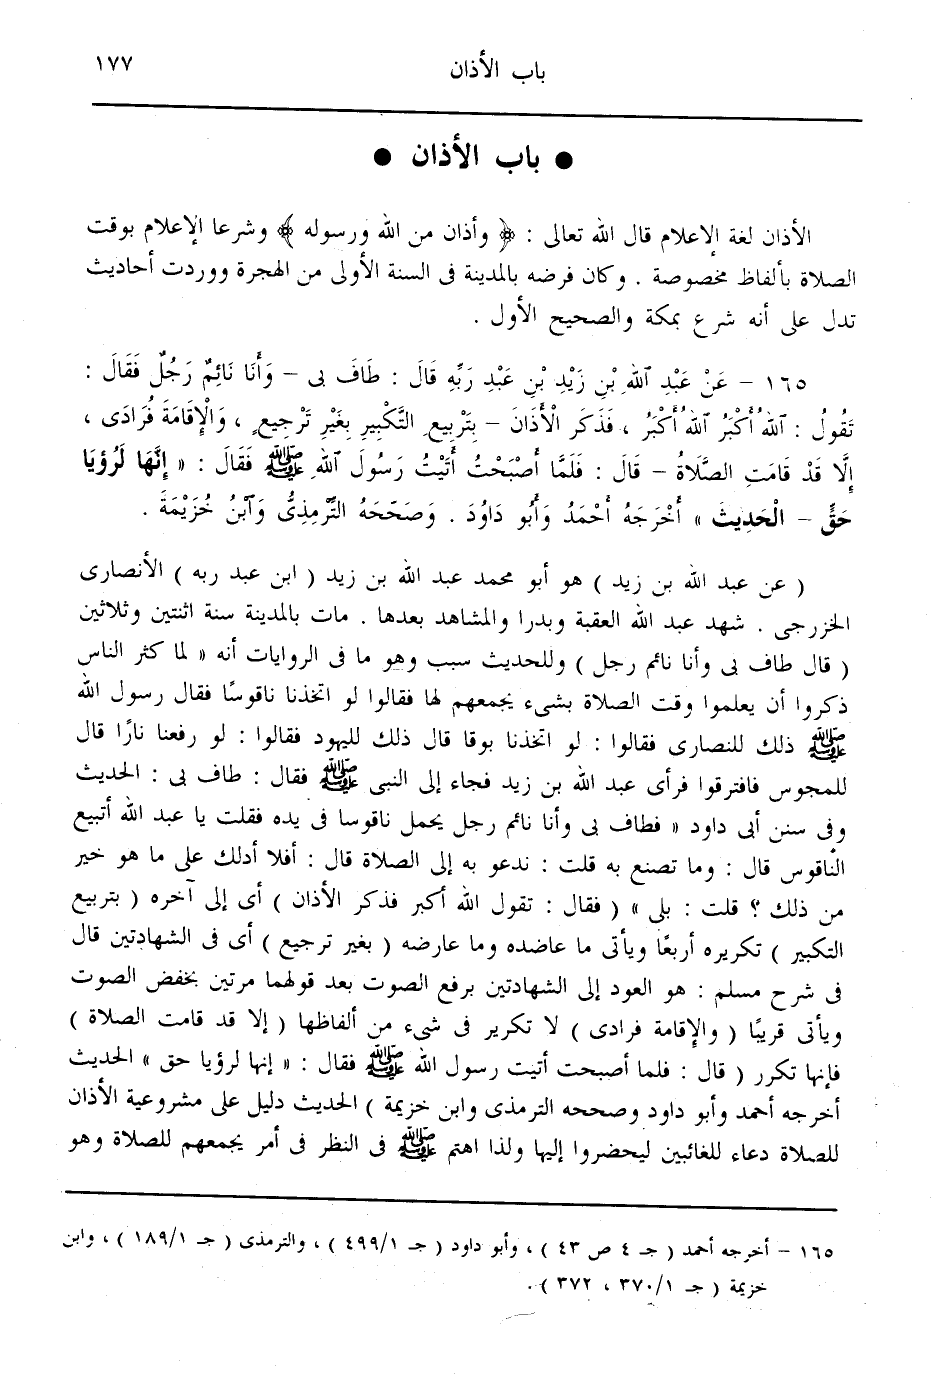 باب الأذان ١٧٧
● باب الأذان ●
الأذان لغة الإعلام قال الله تعالى : ﴿ وأذان من الله ورسوله ﴾ وشرعا الإعلام بوقت
الصلاة بألفاظ مخصوصة . وكان فرضه بالمدينة فى السنة الأولى من الهجرة ووردت أحاديث
تدل على أنه شرع بمكة والصحيح الأول .
١٦٥ – عَنْ عَبْدِ ٱللهِ بْنِ زَيْدِ بْنِ عَبْدِ رَبِّهِ قَالَ : طَافَ بِى – وَأَنَا نَائِمٌ رَجُلٌ فَقَالَ :
تَقُولُ : ٱللهُ أَكْبَرُ ٱللهُ أَكْبَرُ ، فَذَكَرَ الْأَذَانَ – بِتَرْبِيعِ التَّكْبِيرِ بِغَيْرِ تَرْجِيعٍ ، وَالْإِقَامَةَ فُرَادَى ،
إِلَّا قَدْ قَامَتِ الصَّلَاةُ – قَالَ : فَلَمَّا أَصْبَحْتُ أَتَيْتُ رَسُولَ ٱللهِ ﷺ فَقَالَ : « إِنَّهَا لَرُؤيَا
حَقٍّ – الْحَدِيثَ » أَخْرَجَهُ أَحْمَدُ وَأَبُو دَاوُدَ . وَصَحَّحَهُ التِّرْمِذِىُّ وَٱبْنُ خُزَيْمَةَ .
( عن عبد الله بن زيد ) هو أبو محمد عبد الله بن زيد ( ابن عبد ربه ) الأنصارى
الخزرجى . شهد عبد الله العقبة وبدرا والمشاهد بعدها . مات بالمدينة سنة اثنتين وثلاثين
( قال طاف بى وأنا نائم رجل ) وللحديث سبب وهو ما فى الروايات أنه « لما كثر الناس
ذكروا أن يعلموا وقت الصلاة بشىء يجمعهم لها فقالوا لو اتخذنا ناقوسًا فقال رسول الله
ﷺ ذلك للنصارى فقالوا : لو اتخذنا بوقا قال ذلك لليهود فقالوا : لو رفعنا نارًا قال
للمجوس فافترقوا فرأى عبد الله بن زيد فجاء إلى النبى ﷺ فقال : طاف بى : الحديث
وفى سنن أبى داود « فطاف بى وأنا نائم رجل يحمل ناقوسا فى يده فقلت يا عبد الله أتبيع
الناقوس قال : وما تصنع به قلت : ندعو به إلى الصلاة قال : أفلا أدلك على ما هو خير
من ذلك ؟ قلت : بلى » ( فقال : تقول الله أكبر فذكر الأذان ) أى إلى آخره ( بتربيع
التكبير ) تكريره أربعًا ويأتى ما عاضده وما عارضه ( بغير ترجيع ) أى فى الشهادتين قال
فى شرح مسلم : هو العود إلى الشهادتين برفع الصوت بعد قولهما مرتين بخفض الصوت
ويأتى قريبًا ( والإقامة فرادى ) لا تكرير فى شىء من ألفاظها ( إلا قد قامت الصلاة )
فإنها تكرر ( قال : فلما أصبحت أتيت رسول الله ﷺ فقال : « إنها لرؤيا حق » الحديث
أخرجه أحمد وأبو داود وصححه الترمذى وابن خزيمة ) الحديث دليل على مشروعية الأذان
للصلاة دعاء للغائبين ليحضروا إليها ولذا اهتم ﷺ فى النظر فى أمر يجمعهم للصلاة وهو
١٦٥ – أخرجه أحمد ( جـ ٤ ص ٤٣ ) ، وأبو داود ( جـ ٤٩٩/١ ) ، والترمذى ( جـ ١٨٩/١ ) ، وابن
خزيمة ( جـ ٣٧٠/١ ، ٣٧٢ ) .